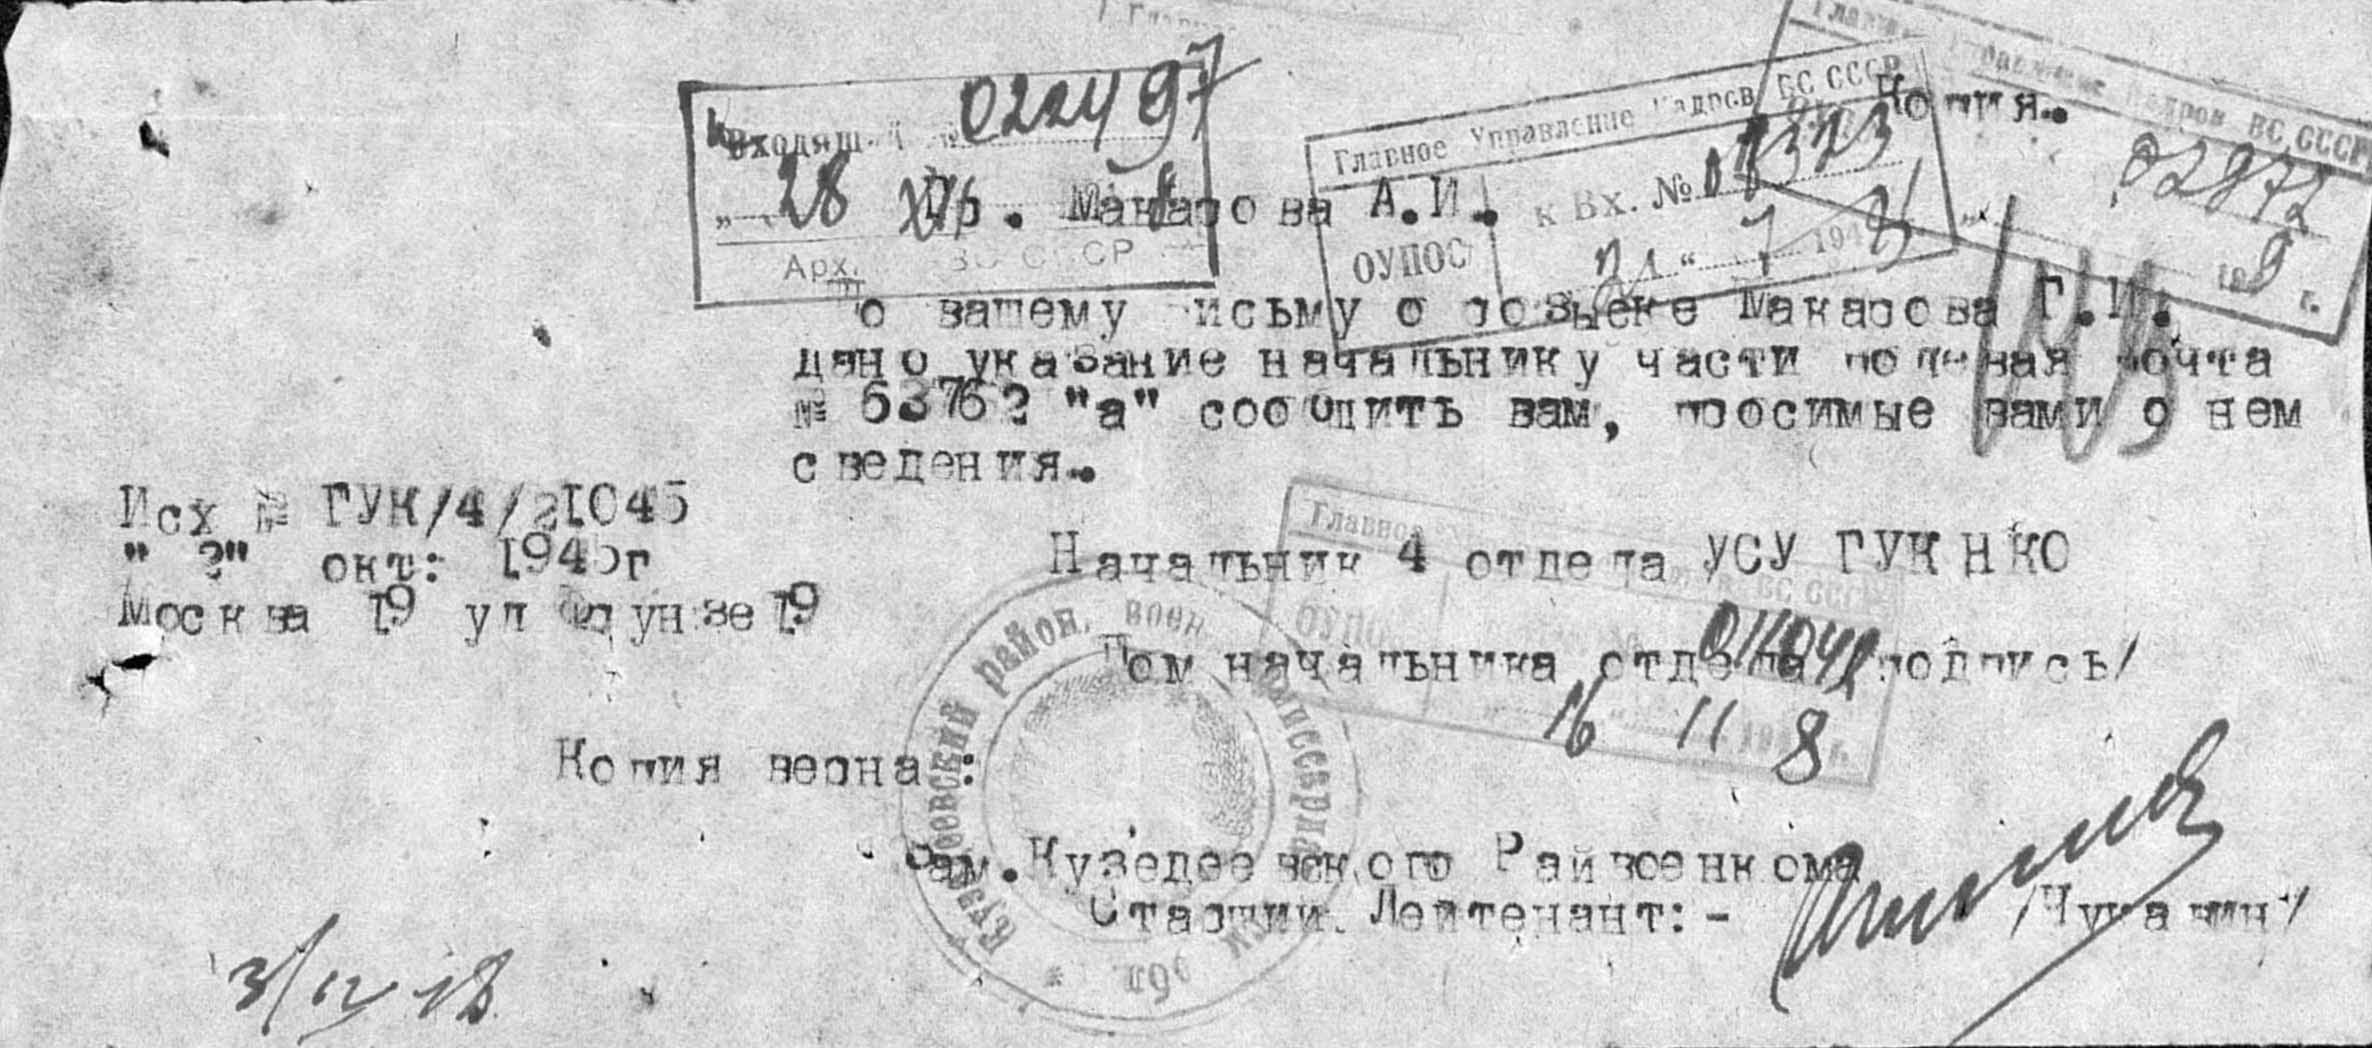 Копия.
Входящий № 022497
" 28
Арх. ВС СССР
Главное Управление Кадров ВС СССР
ОУПОС
к Вх. №
194
Главное Управление Кадров ВС СССР
02872
г.
Гр. Макарова А.И.
По вашему письму о розыске Макарова Г.И.
дано указание начальнику части полевая почта
№ "а" сообщить вам, просимые вами о нем
сведения.
Исх № ГУК/4/21045
" ?" окт: 1945г
Москва 19 ул Фрунзе 19
Начальник 4 отдела УСУ ГУК НКО
Главное ВС СССР
ОУПОС
16 11 8 г.
Пом начальника отдела /подпись/
Копия верна:
Кузедеевский район. воен комиссариат
обл.
Зам. Кузедеевского Райвоенкома
Старший Лейтенант:- /Чукачин/